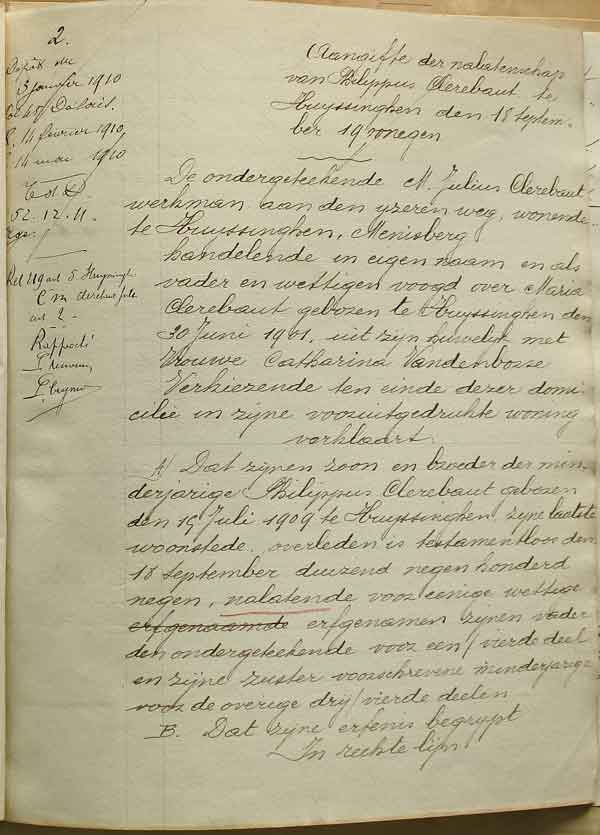 2.
Dépôt du
3 janvier 1910
14 février 1910
14 mai 1910
52. 12. 11.
art 2 -
Rapporté
Aangifte der nalatenschap
van Philippus Clerebaut te
Huyssinghen den 18 Septem-
ber 19 negen
De ondergeteekende M. Julius Clerebaut
werkman aan den yzeren weg, wonende
te Huyssinghen, Menisberg
handelende in eigen naam en als
vader en wettigen voogd over Maria
Clerebaut geboren te Huyssinghen den
30 Juni 1901, uit zijn huwelijk met
Vrouwe Catharina Vandenbosse
Verkiezende ten einde dezer domi-
cilie in zijne vooruitgedrukte woning
verklaart
A) Dat zijnen zoon en broeder der min-
derjarige Philippus Clerebaut geboren
den 15 Juli 1909 te Huyssinghen zijne laatste
woonstede, overleden is testamentloos den
18 September duizend negen honderd
negen, nalatende voor eenige wettige
erfgenaamde erfgenamen zijnen vader
den ondergeteekende voor een/vierde deel
en zijne zuster voorschrevene minderjarige
voor de overige dry/vierde deelen
B. Dat zijne erfenis begrypt
In rechte lijn